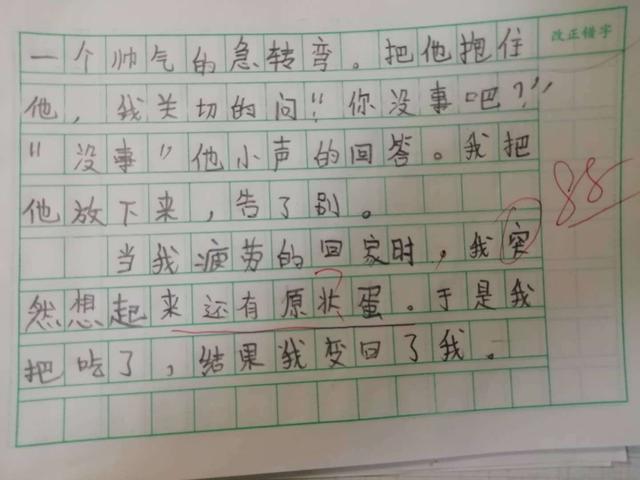 改正错字
一个帅气的急转弯。把他抱住
他，我关切的问"你没事吧？"
"没事"他小声的回答。我把
他放下来，告了别。
当我疲劳的回家时，我突
然想起来还有原状蛋。于是我
把吃了，结果我变回了我。
88